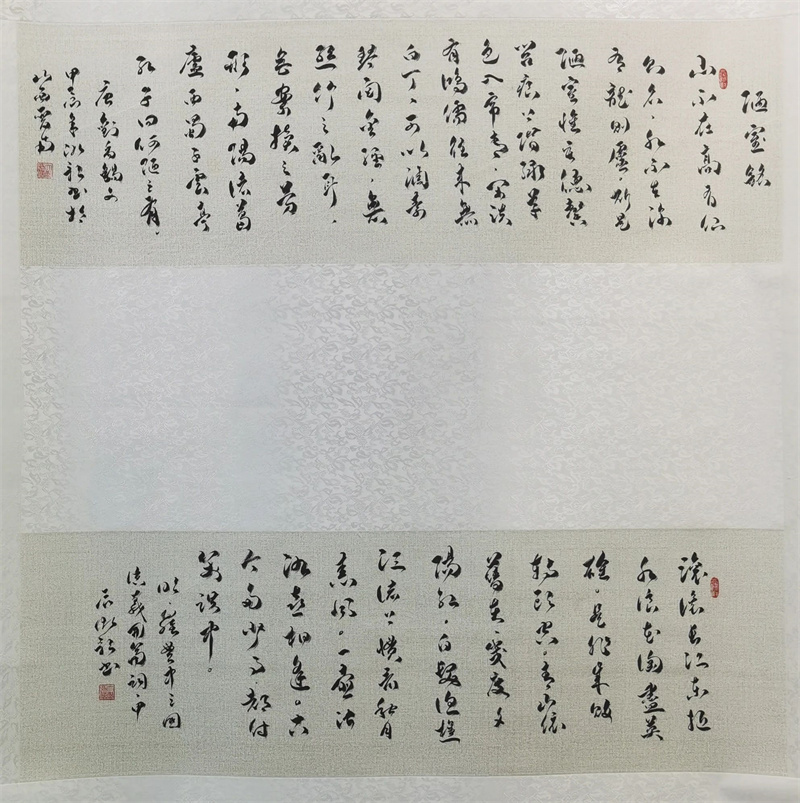 陋室銘
山不在高有仙
則名。水不在深
有龍則靈。斯是
陋室惟吾德馨
苔痕上階綠草
色入帘青。笑談
有鴻儒往來無
白丁、可以調素
琴閱金經。無
絲竹之亂耳、
無案牘之勞
形。南陽諸葛
廬西蜀子雲亭
孔子曰何陋之有。
唐劉禹錫文
甲辰年書於
山西
滾滾長江東逝
水浪花淘盡英
雄。是非成敗
轉頭空。青山依
舊在、幾度夕
陽紅。白髮漁樵
江渚上慣看秋月
春風。一壺濁
酒喜相逢。古
今多少事、都付
笑談中。
明、羅貫中三國
演義開篇詞、甲
辰書